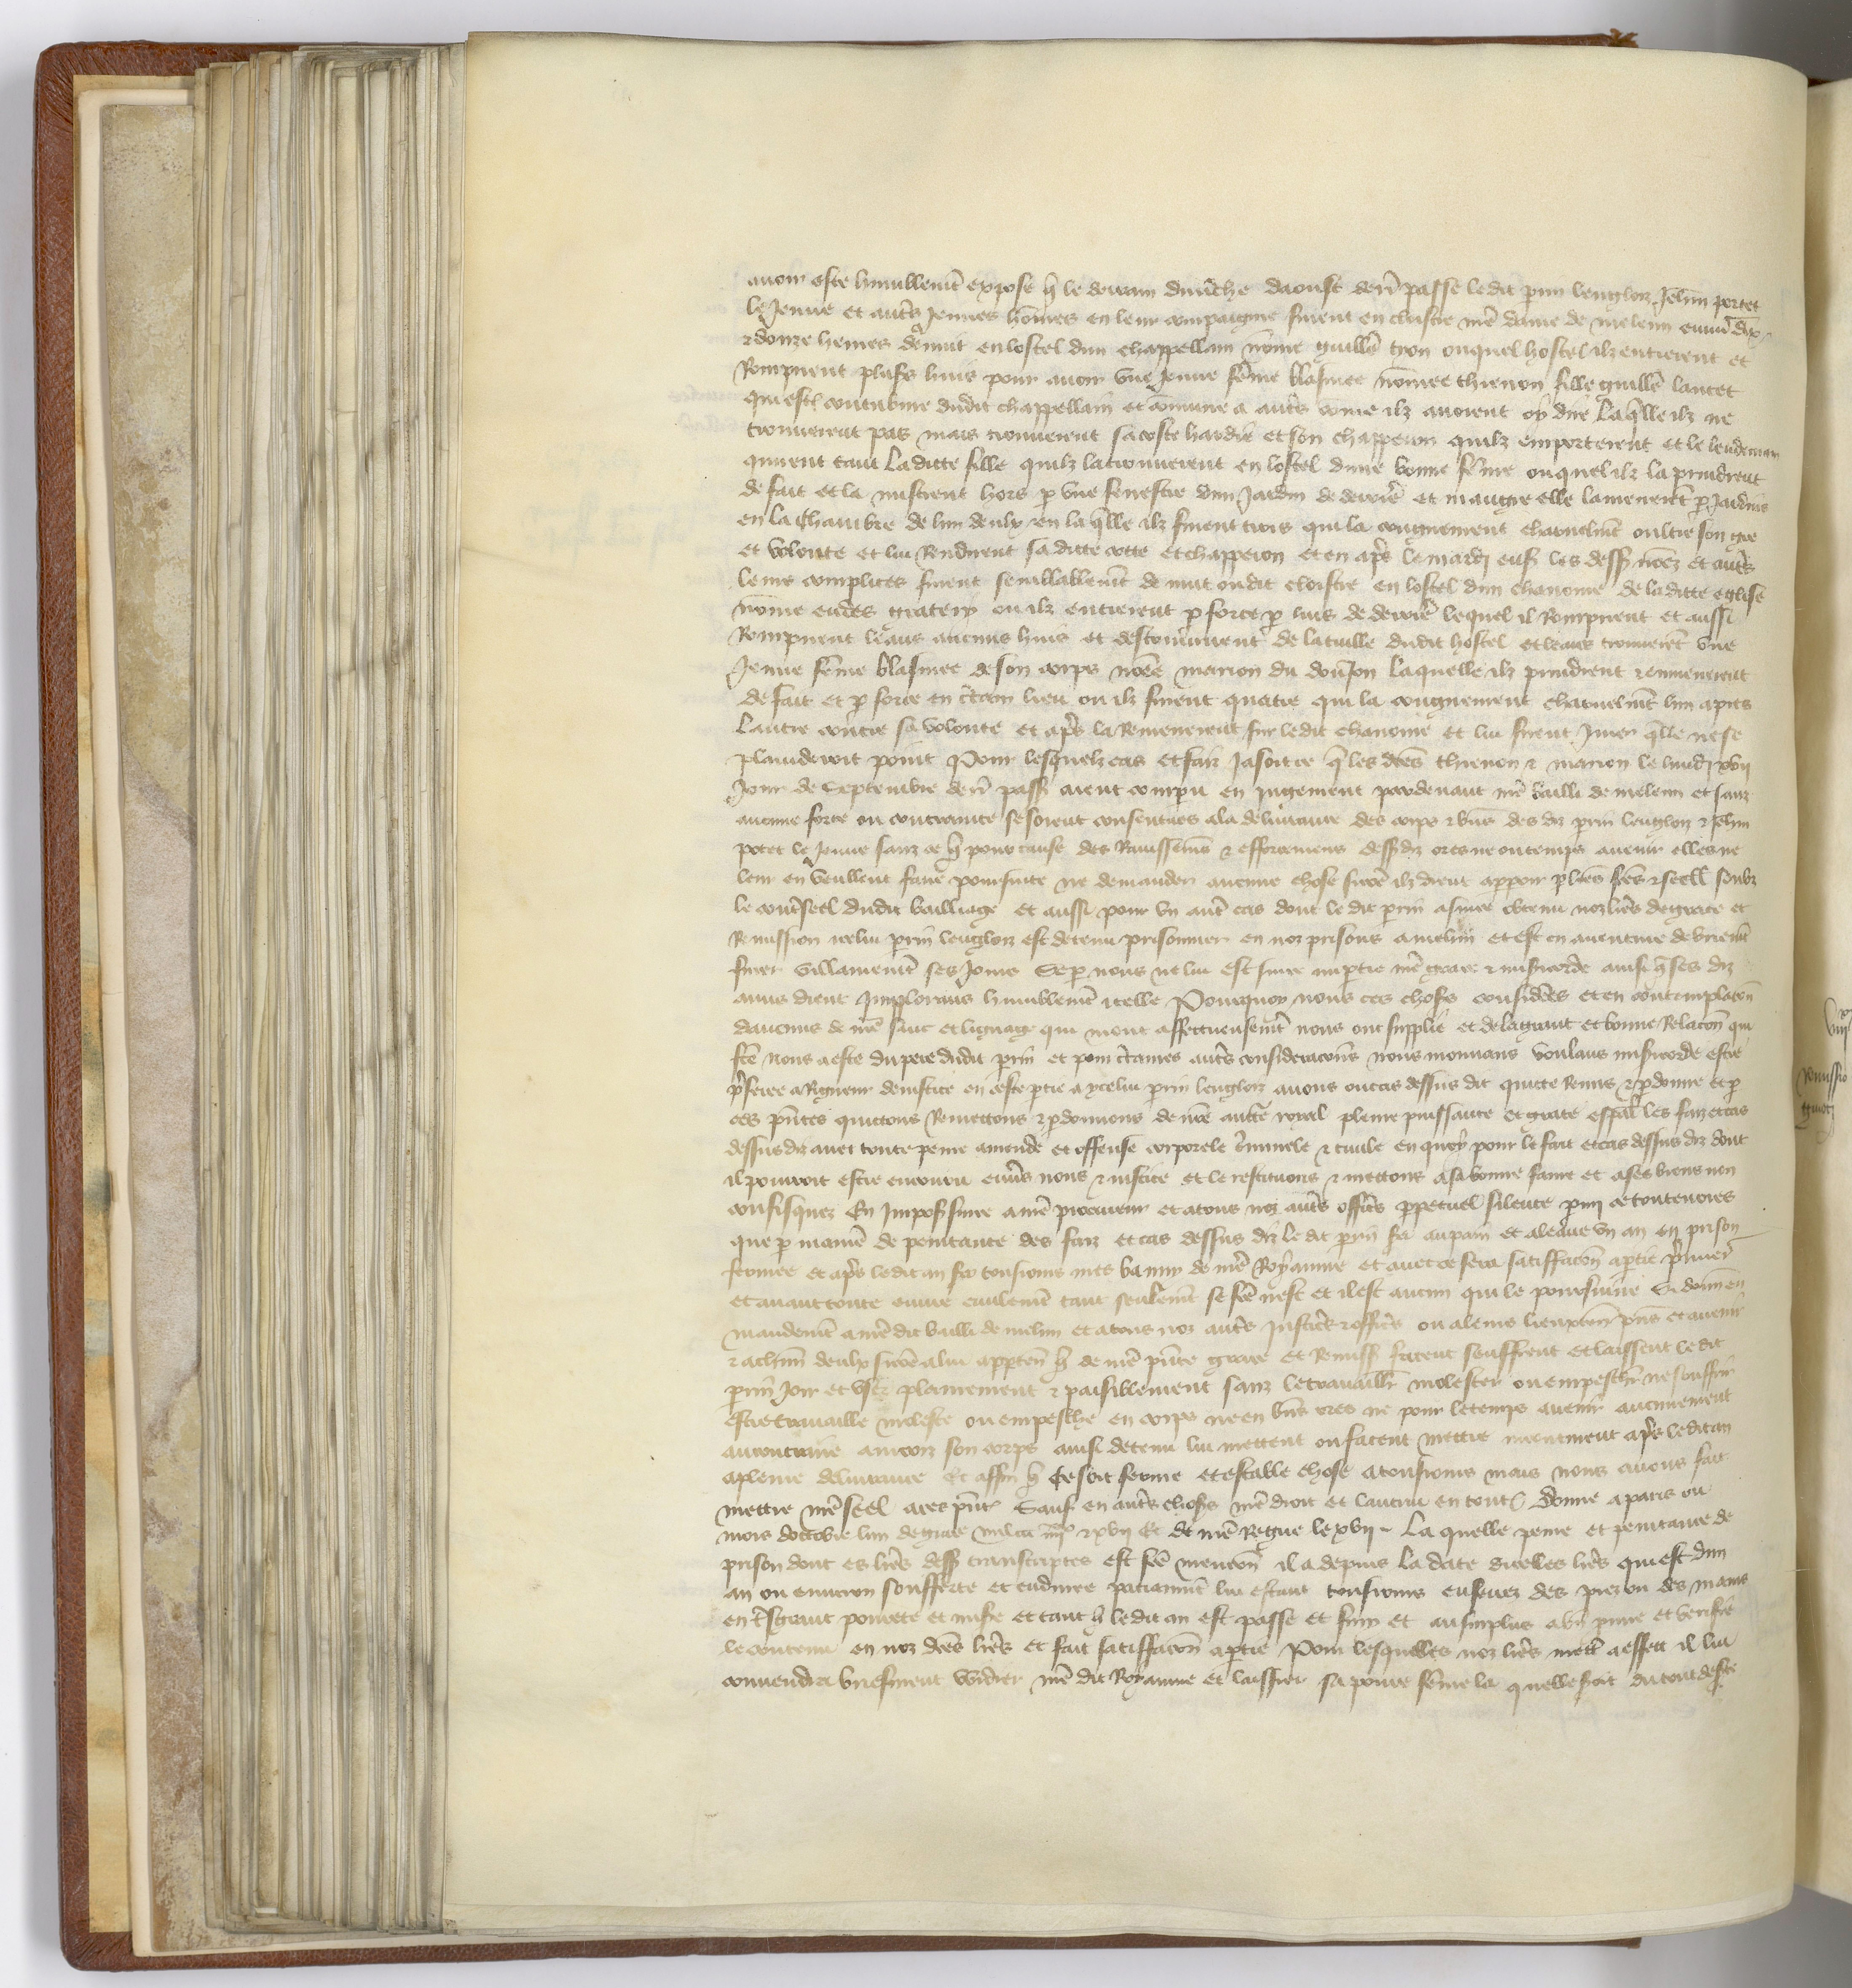 avoir este humblement expose que le derrain dimenche daoust derr passe ledit perrin lenglois Jehan potet
le Jenne et autres Jennes hommes en leur compaignie furent en cloistre nre dame de meleun environ dix
et douze heures de nuit en lostel dun chappellain nomme guille ouquel hostel ilz entrerent et
Rompirent plusrs huis pour avoir une Jenne femme blasmee nommee thienon fille guille lancet
qui est concubine dudit chappellain et commune a autres comme ilz avoient oy dire Laquelle ilz ne
trouverent pas mais trouverent sa coste hardie et son chapperon quilz emporterent et le lendemain
quirent tant Ladicte fille quilz la trouverent en lostel dune bonne femme ouquel ilz la prindrent
de fait et la mistrent hors par une fenestre dun Jardin de derriere et maugre elle lamenerent par Jardins
en la chambre de lun deulx en la quelle ilz furent trois qui la congnurent charnelment oultre son gre
et volente et lui Rendirent sa dicte cotte et chapperon et en apres le mardi ens les dess nommez et autres
leurs complices furent semblablement de nuit oudit cloistre en lostel dun chanoine de ladicte eglise
nomme eudes ou ilz entrerent par force par luis de derriere lequel il Rompirent et aussi
Rompirent leans aucuns huis et descouvrirent de la tuille dudit hostel et leans trouverent une
Jenne femme blasmee de son corps nommee marion du donJon Laquelle ilz prindrent et emmenerent
de fait et par force en certain lieu ou ilz furent quatre qui la congnurent charnelment lun apres
Lautre contre sa volente et apres la Remenerent sur ledit chanoine et lui firent Jurer quelle ne se
plaindroit point Pour lesquelz cas et faiz Jasoit ce que les dictes thienon et marion le lundi xvii
Jour de Septembre derr pass aient comparu en Jugement pardevant nre bailli de meleun et sanz
aucune force ou contrainte se soient consenties a la delivrance des corps et biens des diz perrin lenglois et Jehan
potet le Jenne sanz ce que pour cause des Ravissemens et efforcemens dessdiz ores ne ou temps avenir elles ne
leur en veullent faire poursuite ne demander aucune chose sicomme ilz dient apparoir par lres fces et seell soubz
le contreseel dudit bailliage Et aussi pour un autre cas dont le dit perrin a obtenu noz lres de grace et
Remission icelui perrin lenglois est detenu prisonnier en noz prisons a meleun et est en aventure de briefment
finer villainement ses Jours Se par nous ne lui est sur ce impartie nre grace et misericorde ainsi que ses diz
amis dient Implorans humblement icelle Pourquoy nous ces choses considerees et en contemplacon
daucuns de nre sanc et lignage qui moult affectueusement nous ont supplie et de la grant et bonne Relacon qui
fce nous a este du pere dudit perrin et pour certaines autres consideracions nous mouvans voulans misericorde estre
preferee a Rigueur de justice en ceste partie a ycelui perrin lenglois avons ou cas dessus dit quicte Remis et pardonne et par
ces pntes quictons Remettons et pardonnons de nre aucte royal pleine puissance et grace espal les faiz et cas
dessusdiz avec toute peine amende et offense corporele criminele et civile en quoy pour le fait et cas dessus diz dont
il pourroit estre encouru envers nous et justice et le restituons et mettons a sa bonne fame et a ses biens non
confisquez En Imposant sur ce a nre procureur et a tous noz autres offices perpetuel silence parmi ce toutevoies
que par maniere de penitance des faiz et cas dessus diz le dit perrin sera au pain et a leaue un an en prison
fermee et apres ledit an sera tousiours mes banny de nre Royaume et avec ce fera satisfacon a partie premierement
et avant toute euvre civilement tant seulement se fce nest et il est aucun qui le poursuive Si donnons en
mandement a nre dit bailli de meleun et a tous noz autres Justiciers et officiers ou a leurs lieuxtenans pns et avenir
et a chun deulx sicomme a lui appartendra que de nre pnte grace et Remiss facent seuffrent et laissent le dit
perrin Joir et user plainement et paisiblement sanz le travaillier molester ou empeschier ne souffrir
estre travaille moleste ou empeschie en corps ne en biens ores ne pour le temps avenir aucunement
au contraire aincois son corps ainsi detenu lui mettent ou facent mettre incontinent apres ledit an
a pleine delivrance Et affin que ce soit ferme et estable chose a tousiours mais nous avons fait
mettre nre seel a ces pntes Sauf en autres choses nre droit et lautrui en toutes Donne a paris ou
mois doctobre lan de grace mil ccc iiiixx et xvii Et de nre Regne le xvii Laquelle peine et penitance de
prison dont es lres dess transcriptes est fce mencon il a depuis la date dicelles lres qui est dun
an ou environ soufferte et enduree paciamment lui estant tousiours enferrez des piez ou des mains
en tresgrant povrete et misere et tant que ledit an est passe et finy et au surplus a bien et verifie
le contenu en noz dces lres et fait satisfacon a partie Pour lesquelles noz lres mettre a effect il lui
convendra briefment vuidier nre dit Royaume et laissier sa povre femme la quelle soit du tout deste